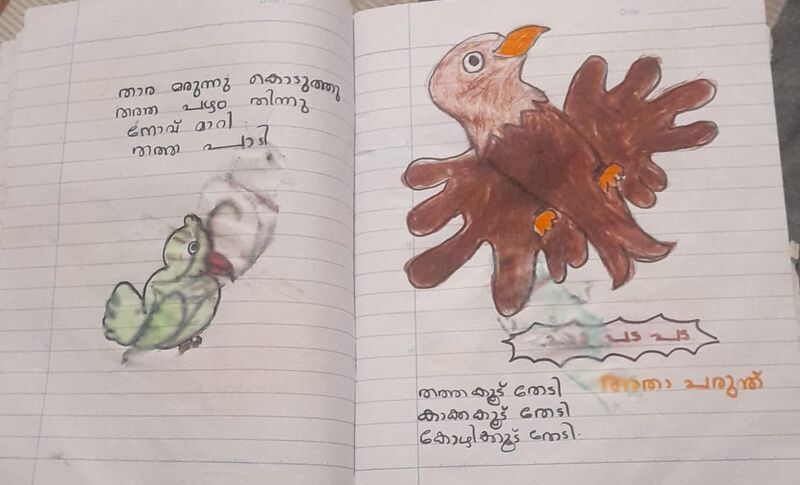 താര മരുന്നു കൊടുത്തു
തത്ത പഴം തിന്നു
നോവ് മാറി
തത്ത പാടി
പട പട
അതാ പരുന്ത്
തത്ത കൂട് തേടി
കാക്ക കൂട് തേടി
കോഴിക്കൂട് തേടി.